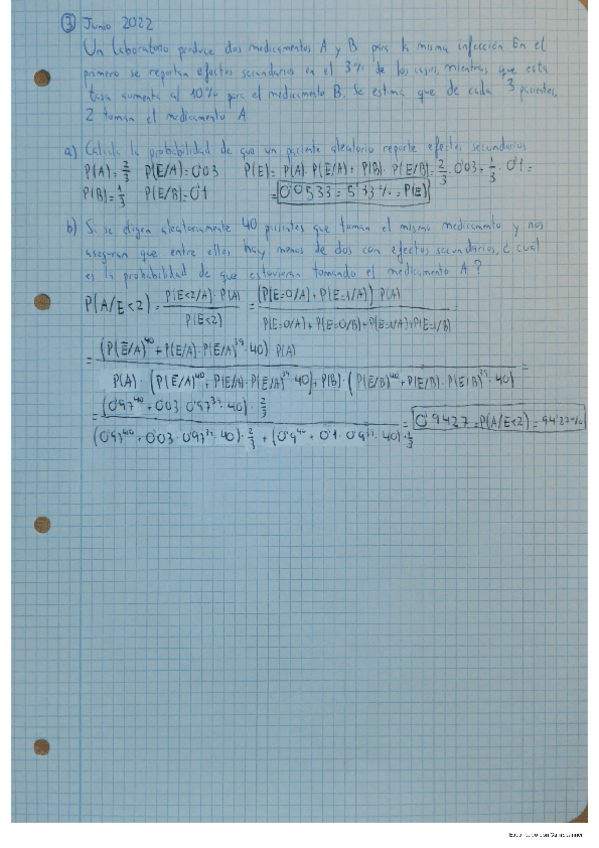 ③ Junio 2022
Un laboratorio produce dos medicamentos A y B para la misma infección En el
primero se reportan efectos secundarios en el 3% de los casos, mientras que esta
tasa aumenta al 10% para el medicamento B. Se estima que de cada 3 pacientes,
2 toman el medicamento A
a) Calcula la probabilidad de que un paciente aleatorio reporte efectos secundarios
P(A)=2/3 P(E/A)=0'03 P(E)= P(A)·P(E/A)+P(B)·P(E/B)=2/3·0'03+1/3·0'1=
P(B)=1/3 P(E/B)=0'1 =0'0533=5'33%=P(E)
b) Si se eligen aleatoriamente 40 pacientes que toman el mismo medicamento y nos
aseguran que entre ellos hay menos de dos con efectos secundarios, ¿cual
es la probabilidad de que estuvieran tomando el medicamento A?
P(A/E<2)= P(E<2/A)·P(A) / P(E<2) = (P(E=0/A)+P(E=1/A))·P(A) / P(E=0/A)+P(E=0/B)+P(E=1/A)+P(E=1/B) =
= (P(Ē/A)^40+P(E/A)·P(Ē/A)^39·40)·P(A) / P(A)·(P(Ē/A)^40+P(E/A)·P(Ē/A)^39·40)+P(B)·(P(Ē/B)^40+P(E/B)·P(Ē/B)^39·40) =
= (0'97^40+0'03·0'97^39·40)·2/3 / (0'97^40+0'03·0'97^39·40)·2/3+(0'9^40+0'1·0'9^39·40)·1/3 = 0'9427=P(A/E<2)=94'27%